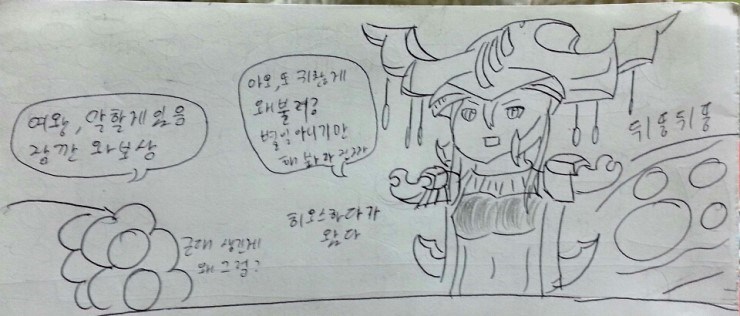 여왕, 말할게 있음
잠깐 와보삼
아오, 또 귀찮게
왜불러?
별일아니기만
해봐라 진짜
뒤뚱뒤뚱
히오스하다가
왔다
근데 생긴게
왜그럼?